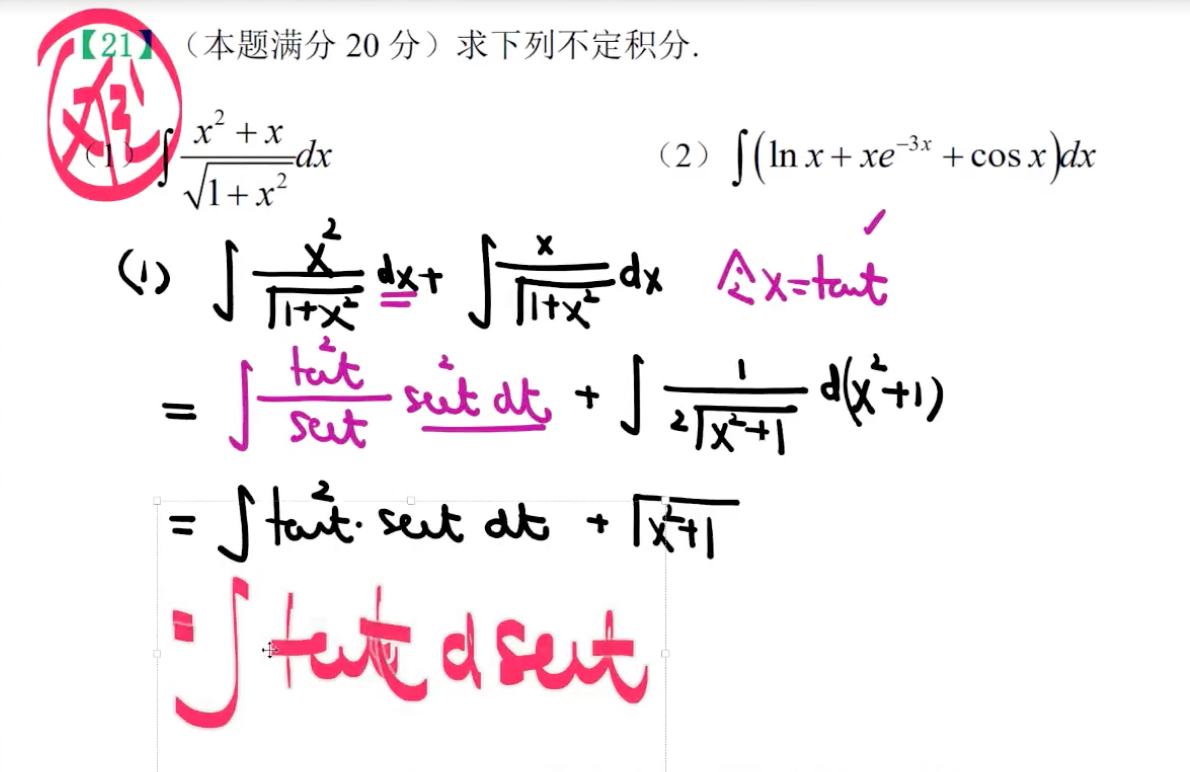 【21】（本题满分 20 分）求下列不定积分.
难
(1) ∫ (x² + x)/√(1+x²) dx （2）∫(ln x + xe^{-3x} + cos x)dx
(1) ∫ x²/√(1+x²) dx + ∫ x/√(1+x²) dx 令x=tant ✓
= ∫ tan²t/sect sec²t dt + ∫ 1/(2√(x²+1)) d(x²+1)
= ∫ tan²t· sect dt + √(x²+1)
= ∫ tant d sect